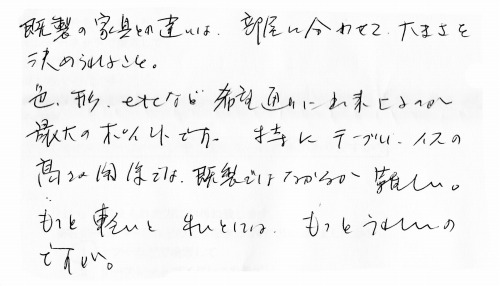 既製の家具との違いは、部屋に合わせて、大きさを
決めうれること。
色、形、etcなど希望通りに出来るのが
最大のポイントです。特にテーブル、イスの
高さの関係では、既製ではなかなか難しい。
もっと軽いと うれしいの
ですが。